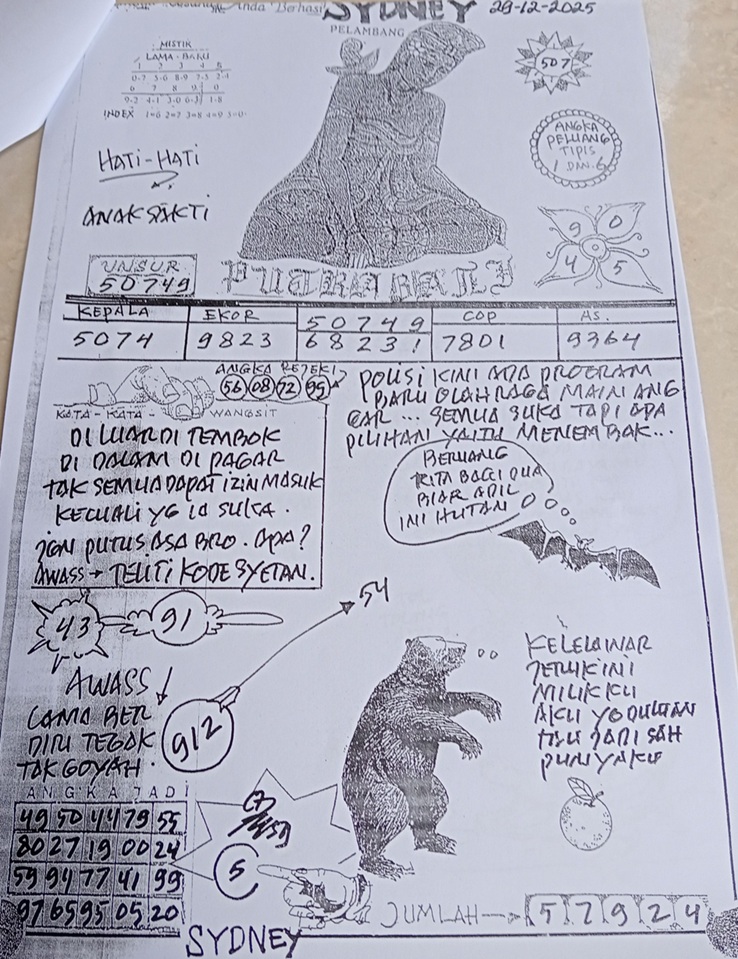 Anda Berhasil
SYDNEY 29-12-2025
PELAMBANG
MISTIK
LAMA - BARU
1 2 3 4 5
0-7 3-6 8-9 7-5 2-4
6 7 8 9 0
9-2 4-1 3-0 6-3 1-8
INDEX 1=6 2=7 3=8 4=9 5=0
507
ANGKA
PELUANG
TIPIS
1 DAN 6
HATI-HATI
ANAK SAKTI
9 0
4 5
UNSUR
50749
PUTRA BALI
KEPALA EKOR 50749 COP AS.
5074 9823 68231 7801 9364
ANGKA REJEKI
56 08 72 95
KATA - KATA - WANGSIT
DI LUAR DI TEMBOK
DI DALAM DI PAGAR
TAK SEMUA DAPAT IZIN MASUK
KECUALI YG IA SUKA.
JGN PUTUS ASA BRO. APA?
AWASS → TELITI KODE SYETAN.
POLISI KINI ADA PROGRAM
BARU OLAHRAGA MAIN ANG
GAR ... SEMUA SUKA TAPI ADA
PILIHAN YAITU MENEMBAK...
BERUANG
KITA BAGI DUA
BIAR ADIL
INI HUTAN
43 91
54
AWASS
LAMA BER
DIRI TEGAK
TAK GOYAH.
912
KELELAWAR
JERUK INI
MILIKKU
AKU YG DULUAN
JADI SAH
PUNYAKU
ANGKA JADI
49 50 44 79 55
80 27 19 00 24
59 94 77 41 99
97 65 95 05 20
5
JUMLAH → 5 7 9 2 4
SYDNEY